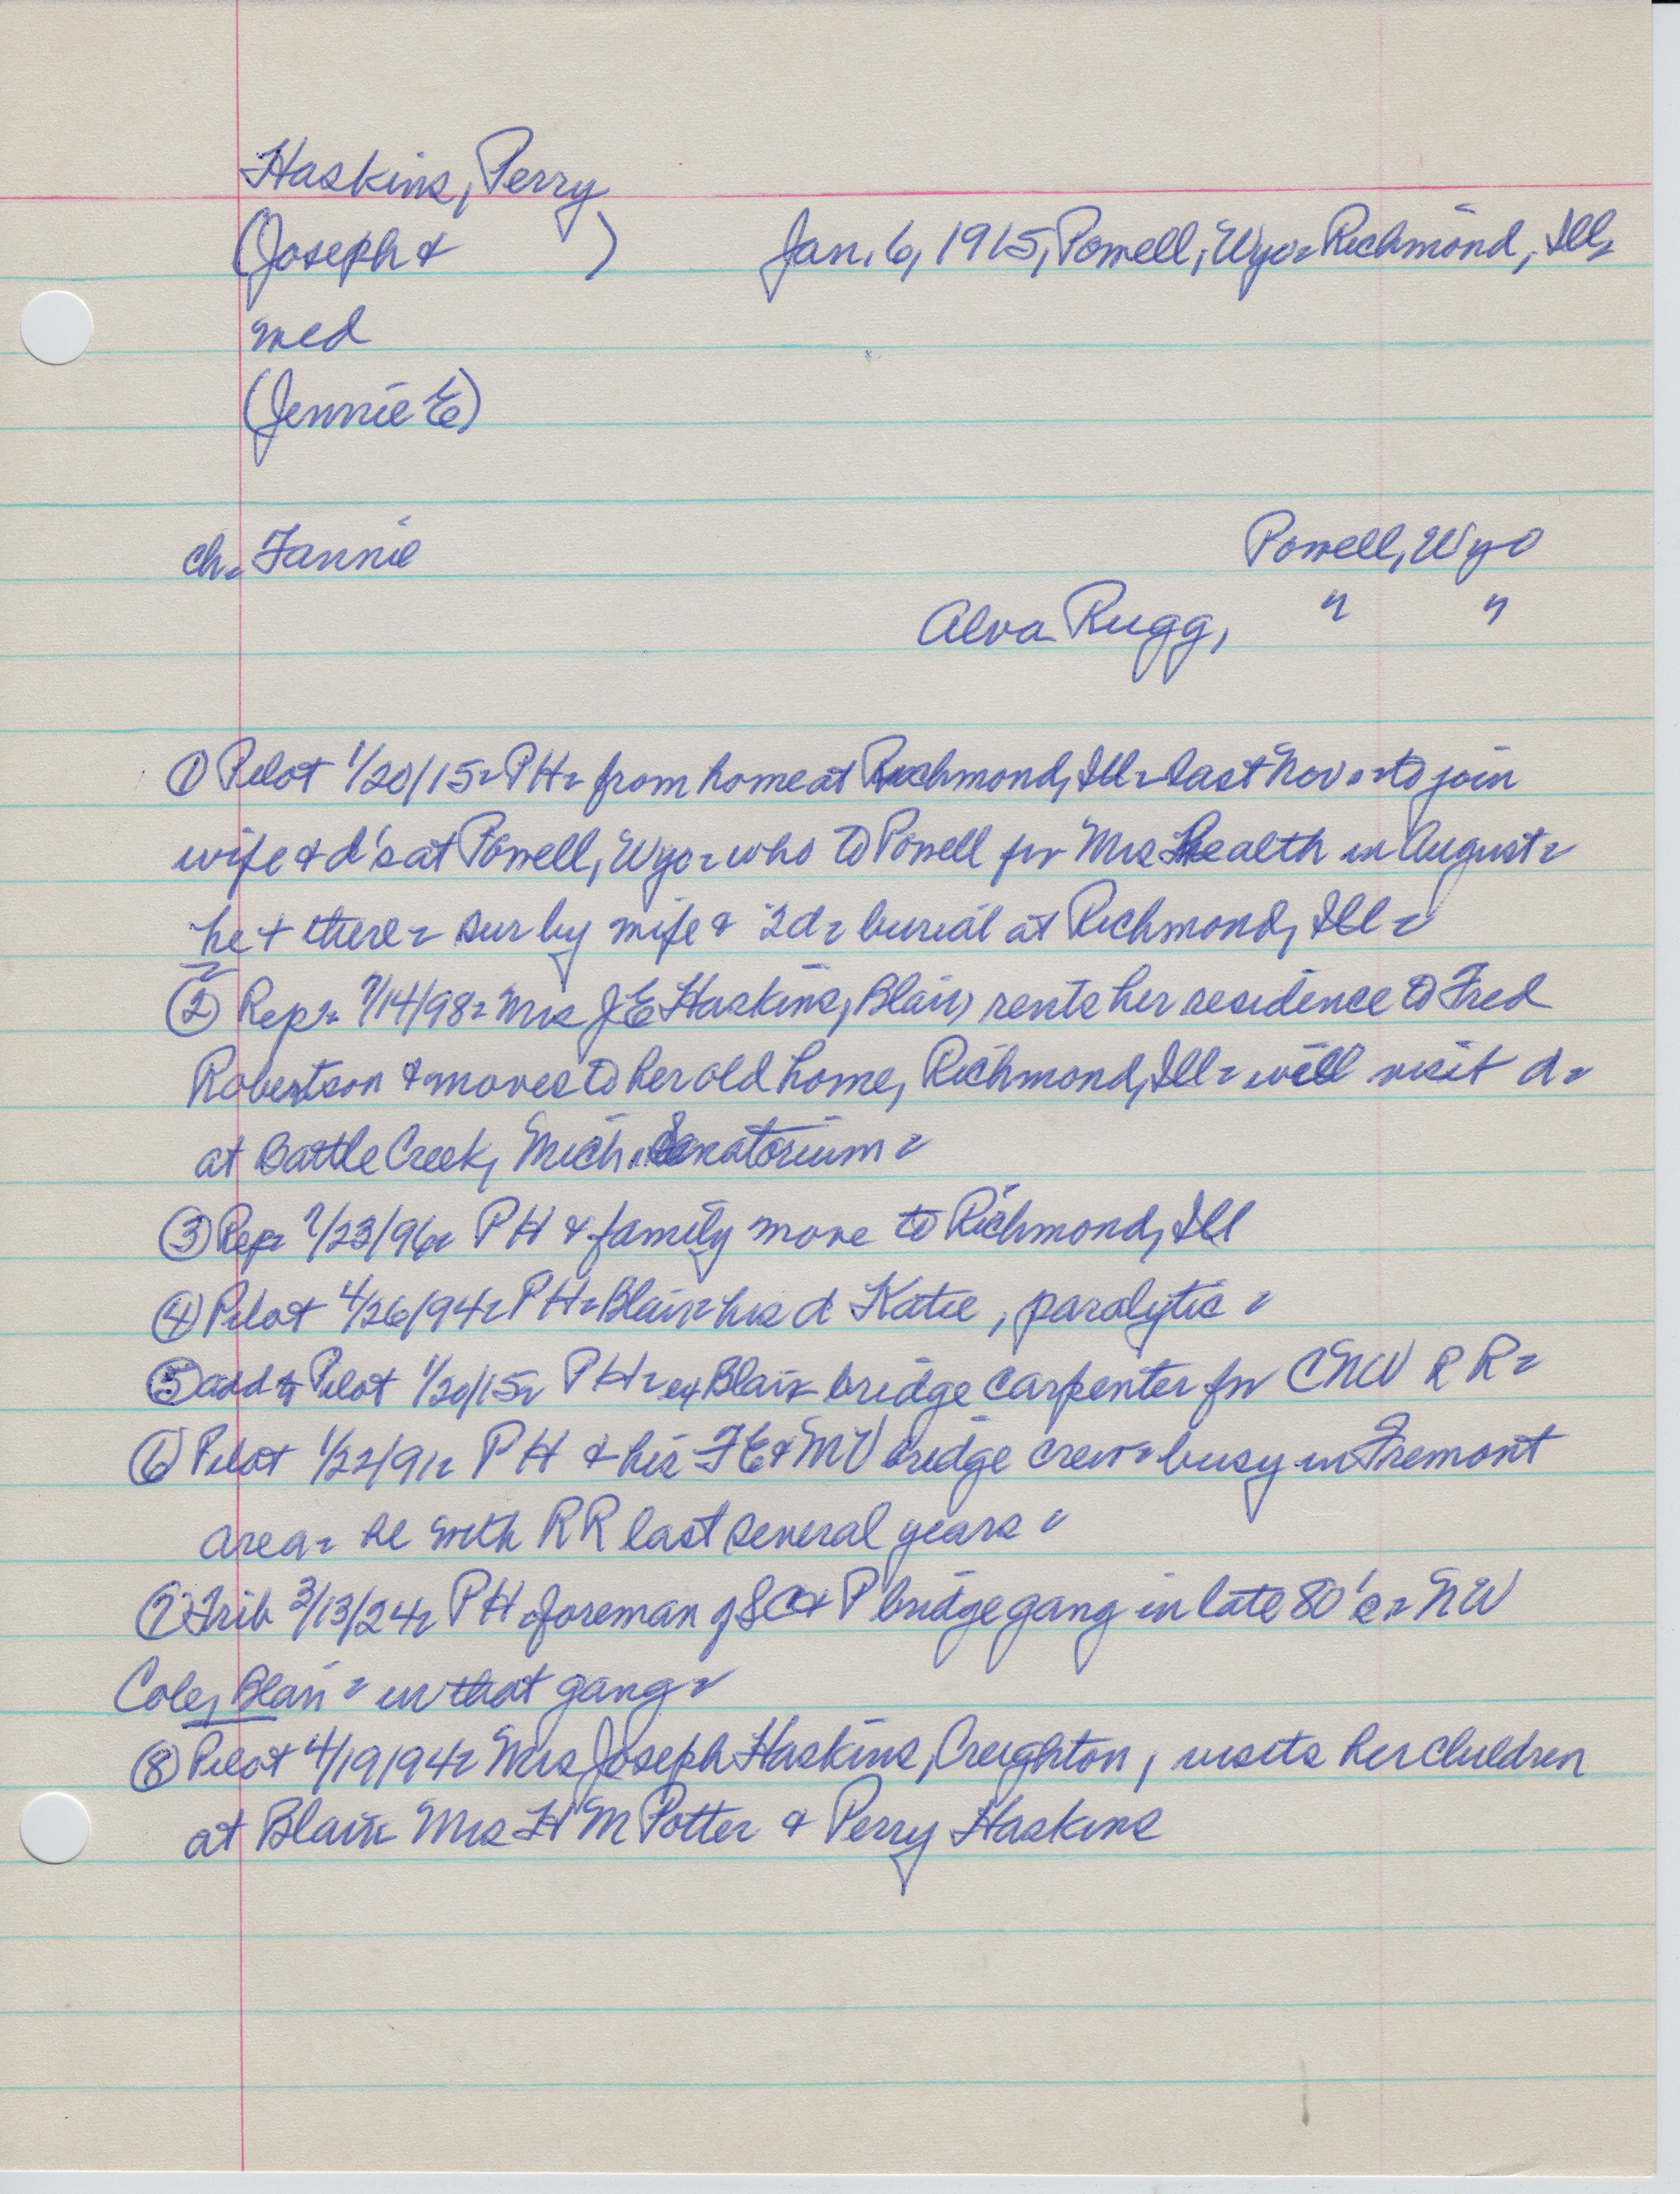 Haskins, Perry
(Joseph & ) Jan. 6, 1915, Powell, Wyo= Richmond, Ill=
med
(Jennie E)
ch= Fannie Powell, Wyo
Alva Rugg, " "
① Pilot 1/20/15= PH= from home at Richmond, Ill= last Nov.= to join
wife & d's at Powell, Wyo= who to Powell for Mrs Health in August=
he + there= sur by wife & 2d= burial at Richmond, Ill=
② Rep= 7/14/98= Mrs JE Haskins, Blair, rents her residence to Fred
Robertson & moves to her old home, Richmond, Ill= will visit d=
at Battle Creek, Mich. Sanatorium=
③ Rep= /23/96= PH & family move to Richmond, Ill
④ Pilot 4/26/94= PH= Blair= his d Katie, paralytic=
⑤ add to Pilot 1/20/15= PH= ex Blair= bridge carpenter for CNW RR=
⑥ Pilot 1/22/91= PH & his FE&MV bridge crew= busy in Fremont
area= he with RR last several years=
⑦ Trib 3/13/24= PH foreman of SC&P bridge gang in late 80's= NW
Cole, Blair= in that gang=
⑧ Pilot 4/19/94= Mrs Joseph Haskins, Creighton, visits her children
at Blair= Mrs H M Potter & Perry Haskins